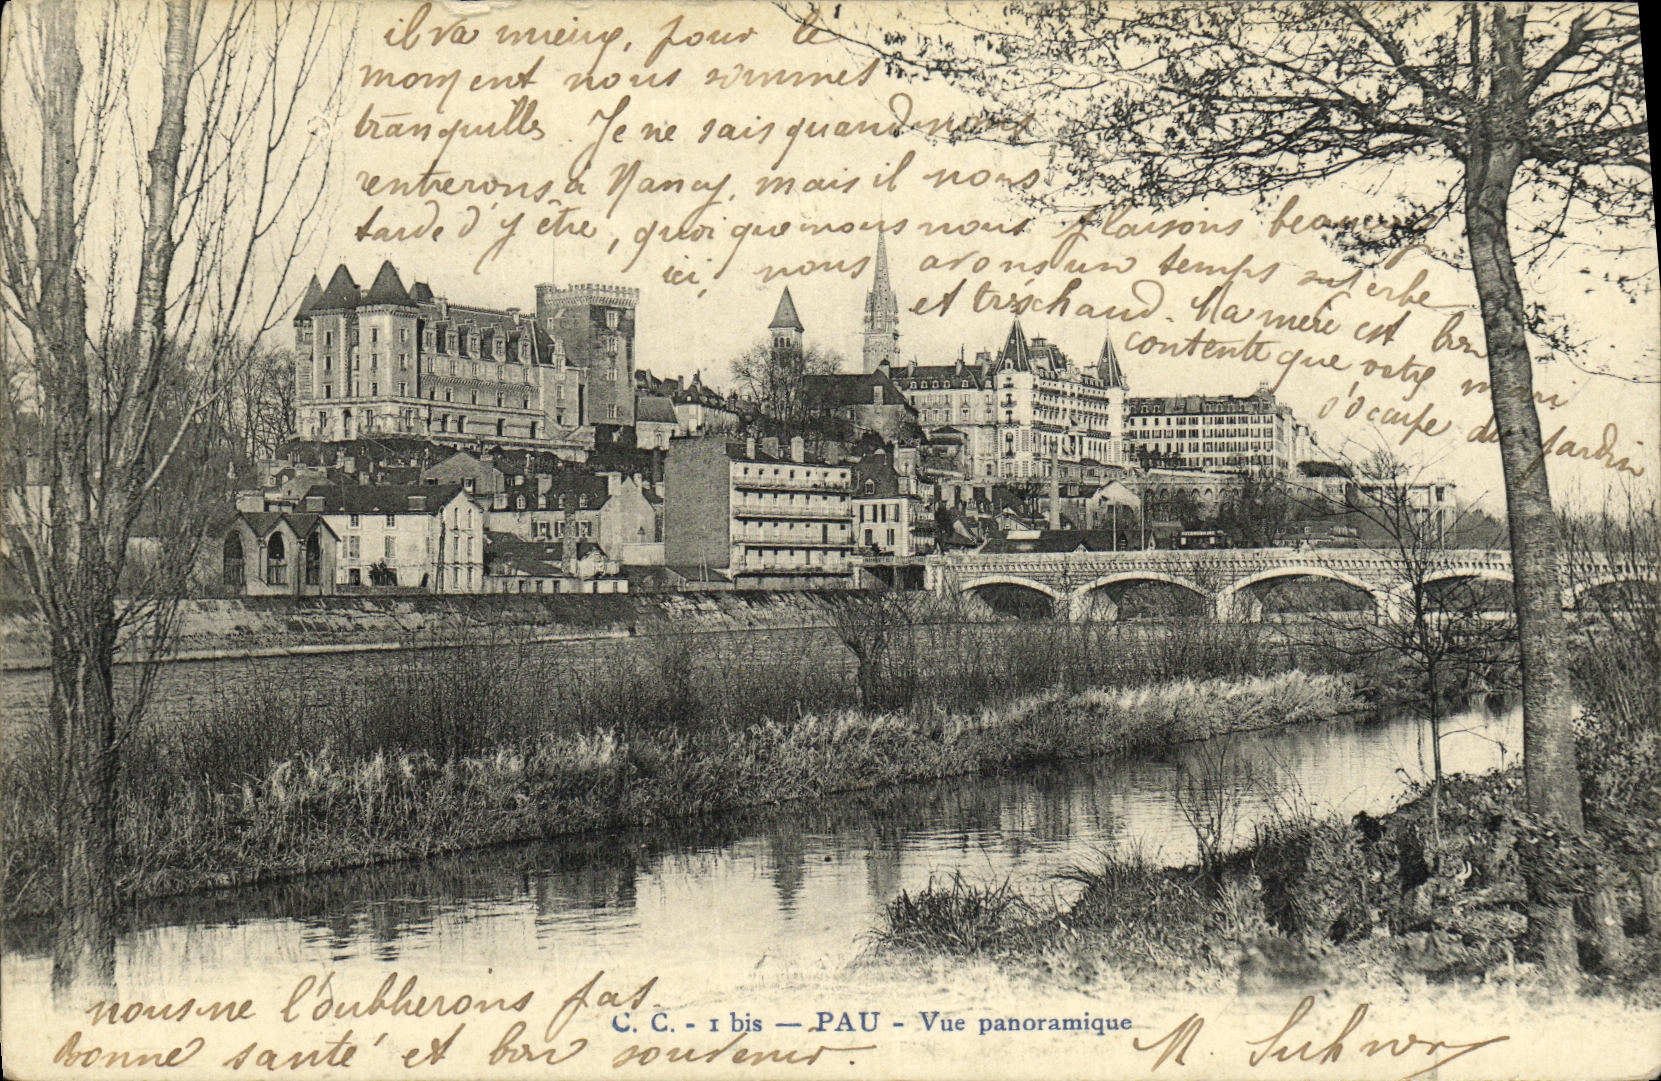 il va mieux, pour le
moment nous sommes
tranquilles. Je ne sais quand nous
rentrerons à Nancy, mais il nous
tarde d'y être, quoique nous nous plaisons beaucoup
ici, nous avons un temps superbe
et très chaud. Ma mère est bien
contente que votre mari
s'occupe du jardin
nous ne l'oublierons pas.
C. C. - 1 bis — PAU - Vue panoramique
Bonne santé et bon souvenir.
M.